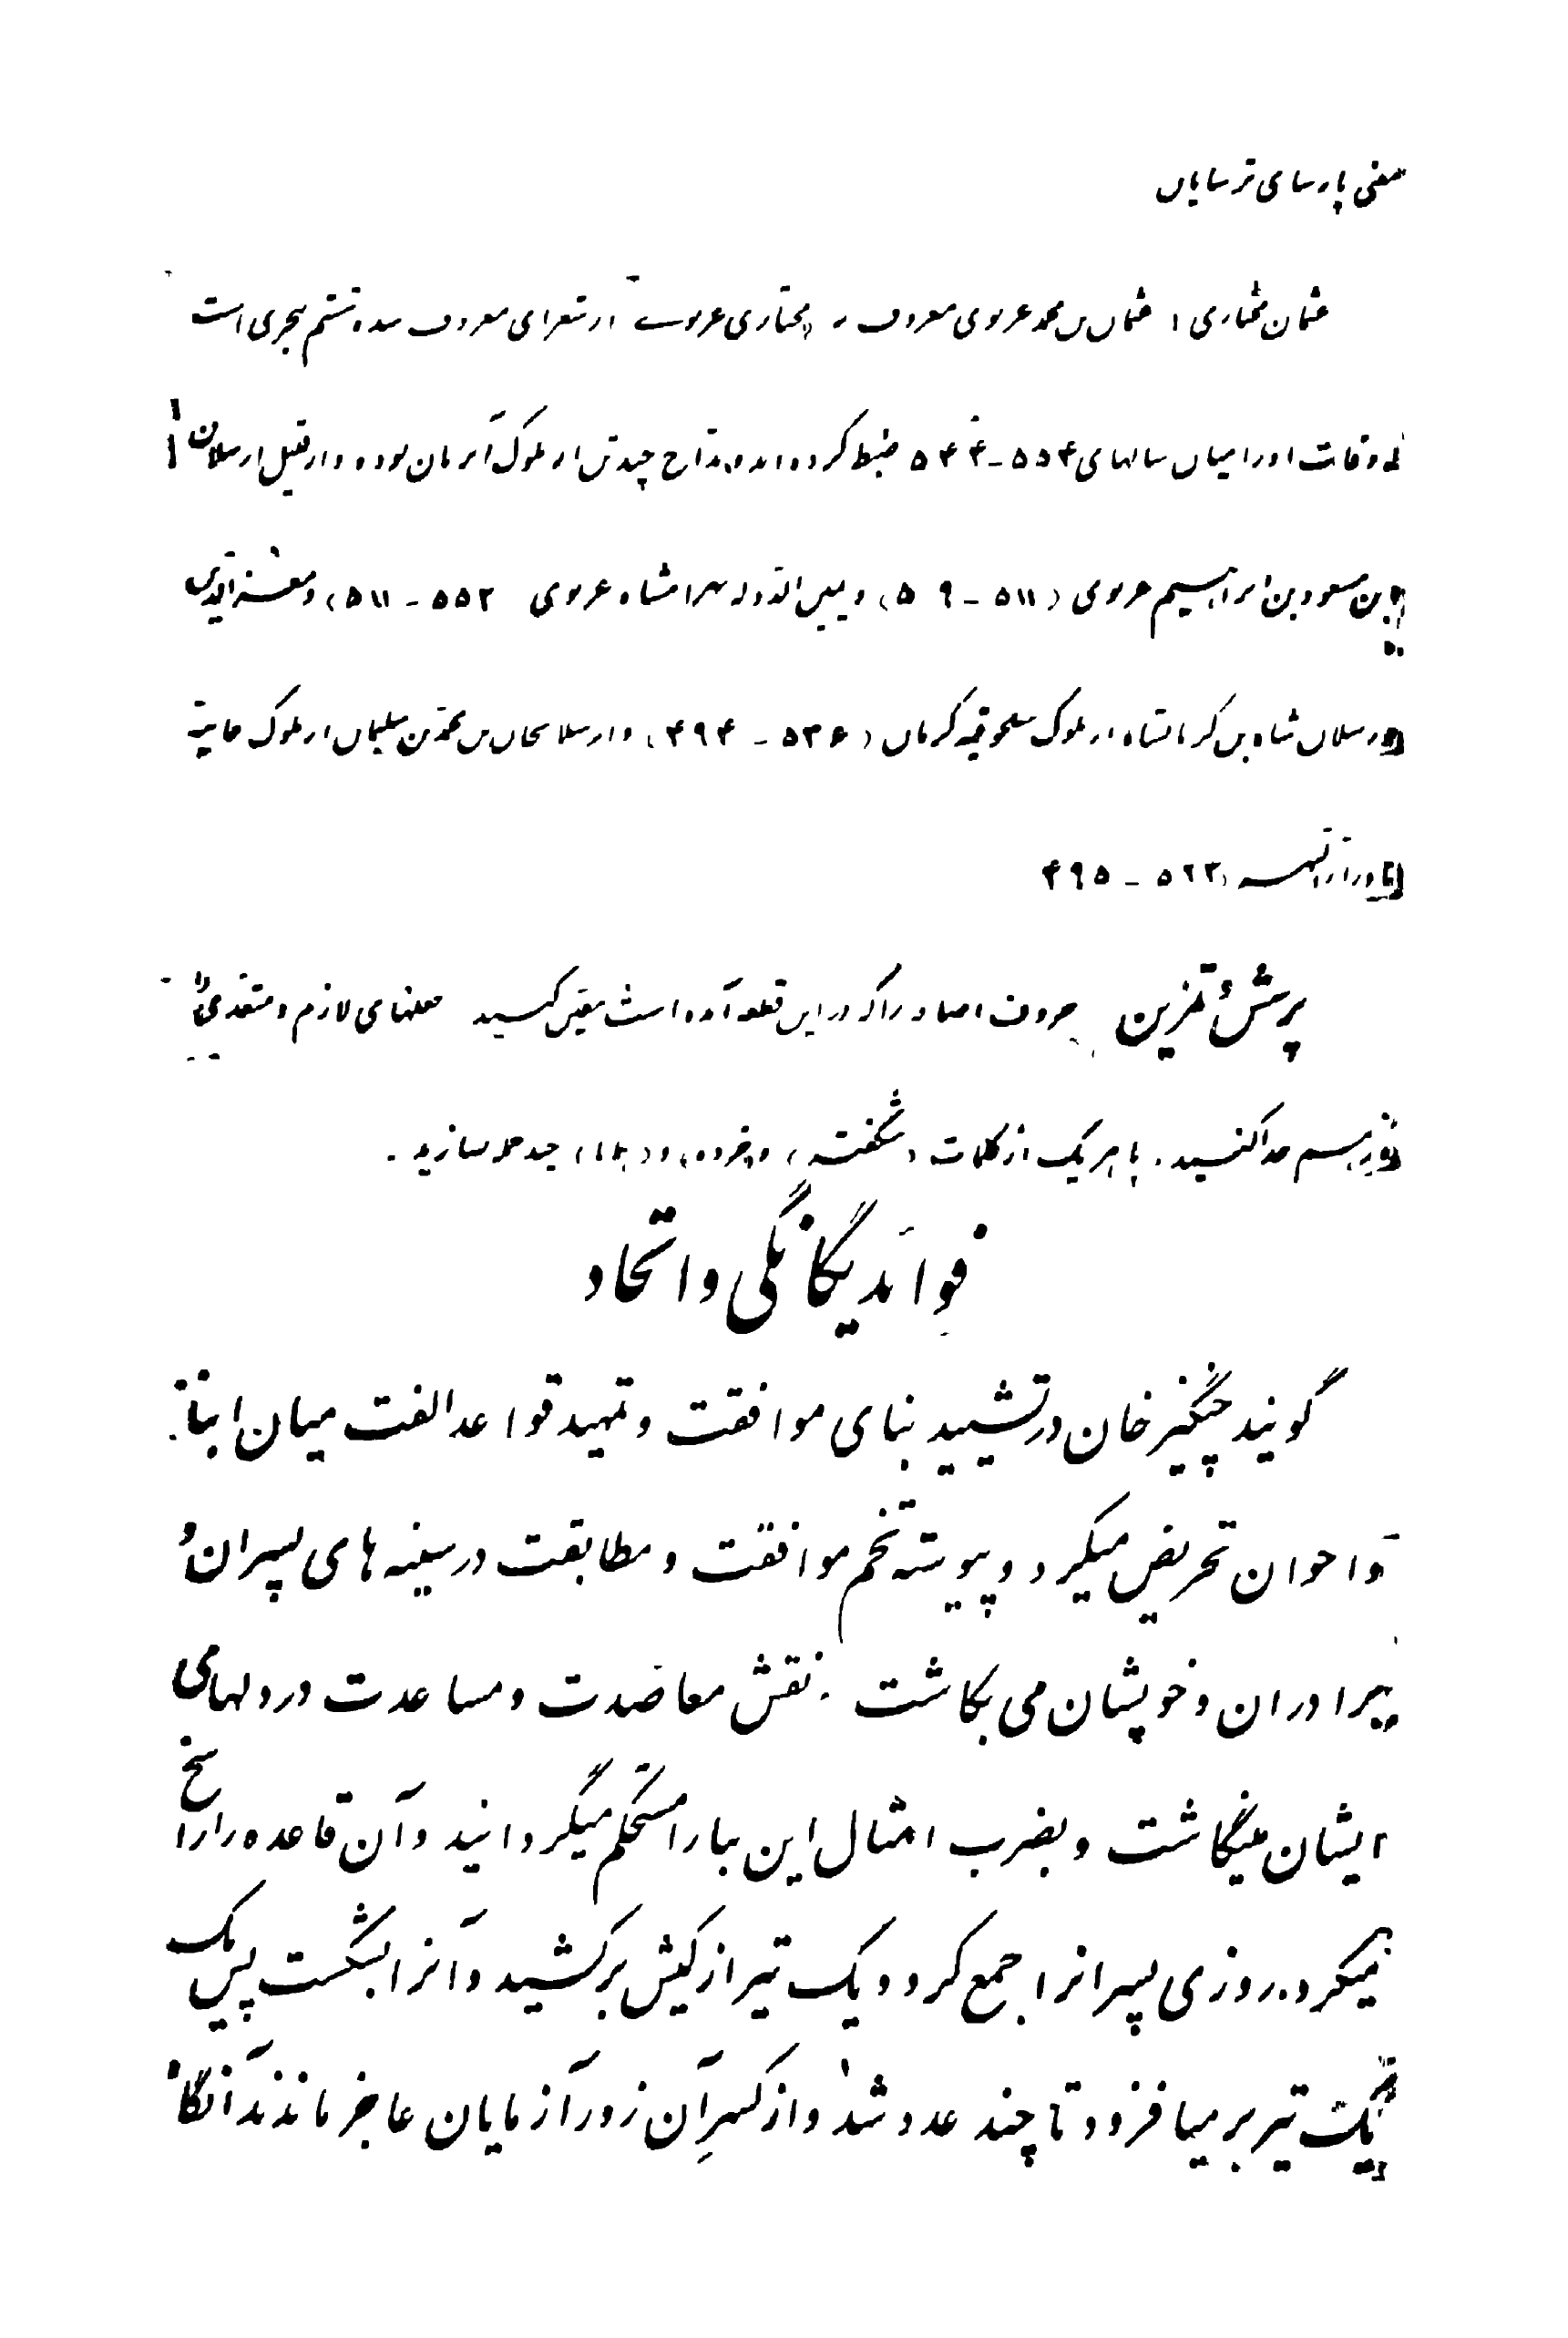 معنی پارسای ترسایان
عثمان مختاری: عثمان بن محمد غزنوی معروف به «مختاری غزنوی» از شعرای معروف سده ششم هجری است
که وفات او را میان سالهای ۵۵۴ - ۵۴۴ ضبط کرده‌اند. مداح چند تن از ملوک آن زمان بوده و از قبیل ارسلان
بن مسعود بن ابراهیم غزنوی (۵۱۱ - ۵۰۹) و یمین الدوله بهرامشاه غزنوی (۵۵۲ - ۵۱۱) و معزالدین
ارسلان شاه بن کرمانشاه از ملوک سلجوقیه کرمان (۵۳۶ - ۴۹۴) و ارسلانخان بن محمد بن سلیمان از ملوک خانیه
ماوراءالنهر (۵۲۳ - ۴۹۵
پرسش و تمرین حروف اضافه را که در این قطعه آمده است معین کنید فعلهای لازم و متعدی را
از هم جدا کنید. با هر یک از کلمات (شگفت) و چند جمله بسازید.
فوائد یگانگی و اتحاد
گویند چنگیز خان در تشیید بنای موافقت و تمهید قواعد الفت میان ابناء
و اخوان تحریض میکرد و پیوسته تخم موافقت و مطابقت در سینه های پسران و
برادران و خویشان می بکاشت . نقش معاضدت و مساعدت در دلهای
ایشان مینگاشت و بضرب امثال این بنا را مستحکم میگردانید و آن قاعده را راسخ
میکرد. روزی پسرانرا جمع کرد و یک تیر از کیش برکشید و آنرا بشکست پس یک
یک تیر بر میافزود تا چند عدد شد و از کسر آن زورآزمایان عاجز ماندند آنگاه